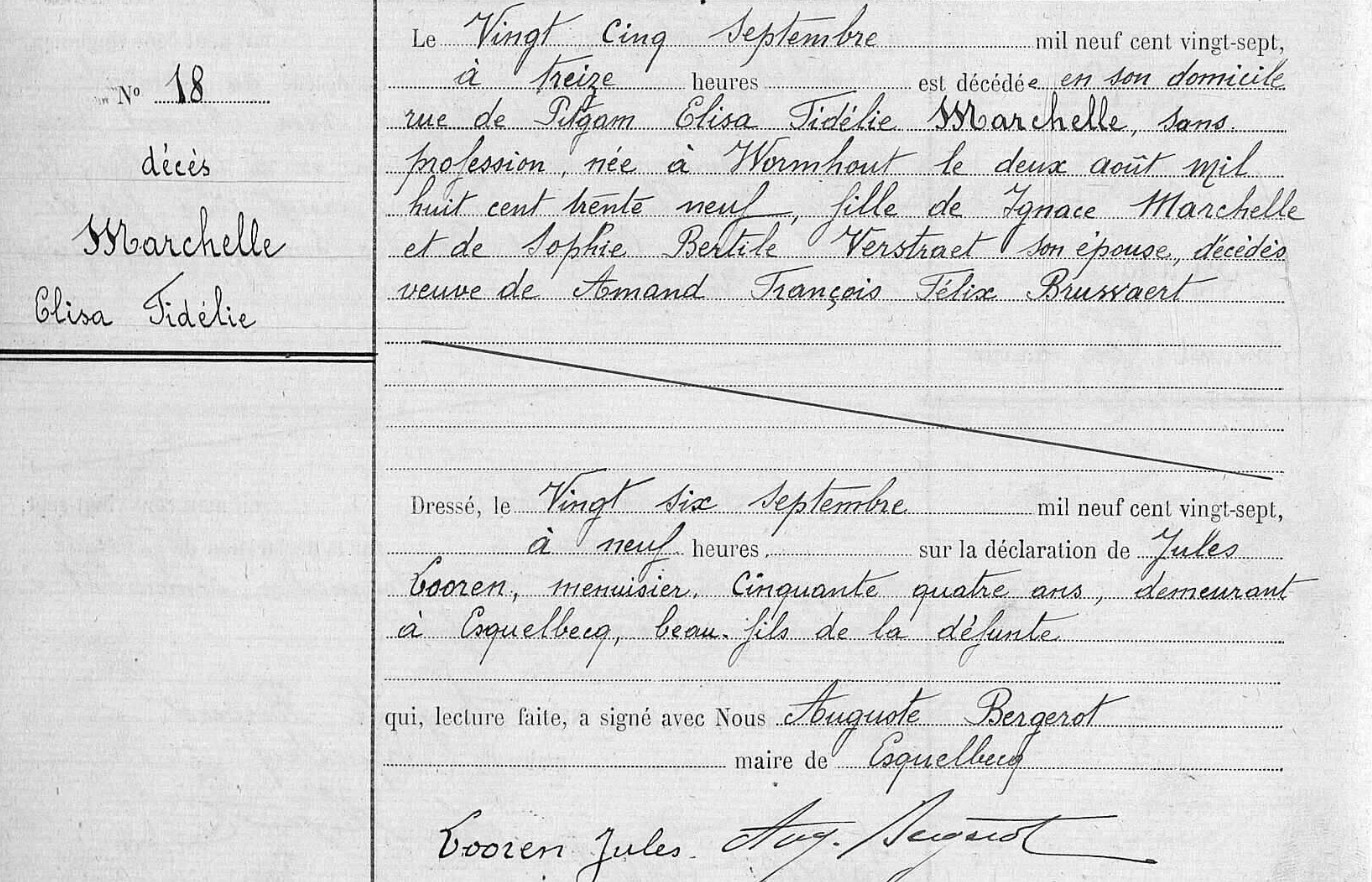 N° 18
décès
Marchelle
Elisa Fidélie
Le Vingt Cinq Septembre mil neuf cent vingt-sept,
à treize heures est décédée en son domicile
rue de Pitgam Elisa Fidélie Marchelle, sans
profession, née à Wormhout le deux août mil
huit cent trente neuf, fille de Ignace Marchelle
et de Sophie Bertile Verstraet son épouse, décédés
veuve de Amand François Félix Bruwaert
Dressé, le Vingt six Septembre mil neuf cent vingt-sept,
à neuf heures sur la déclaration de Jules
Looren, menuisier, cinquante quatre ans, demeurant
à Esquelbecq, beau-fils de la défunte
qui, lecture faite, a signé avec Nous Auguste Bergerot
maire de Esquelbecq
Looren Jules. Aug. Bergerot